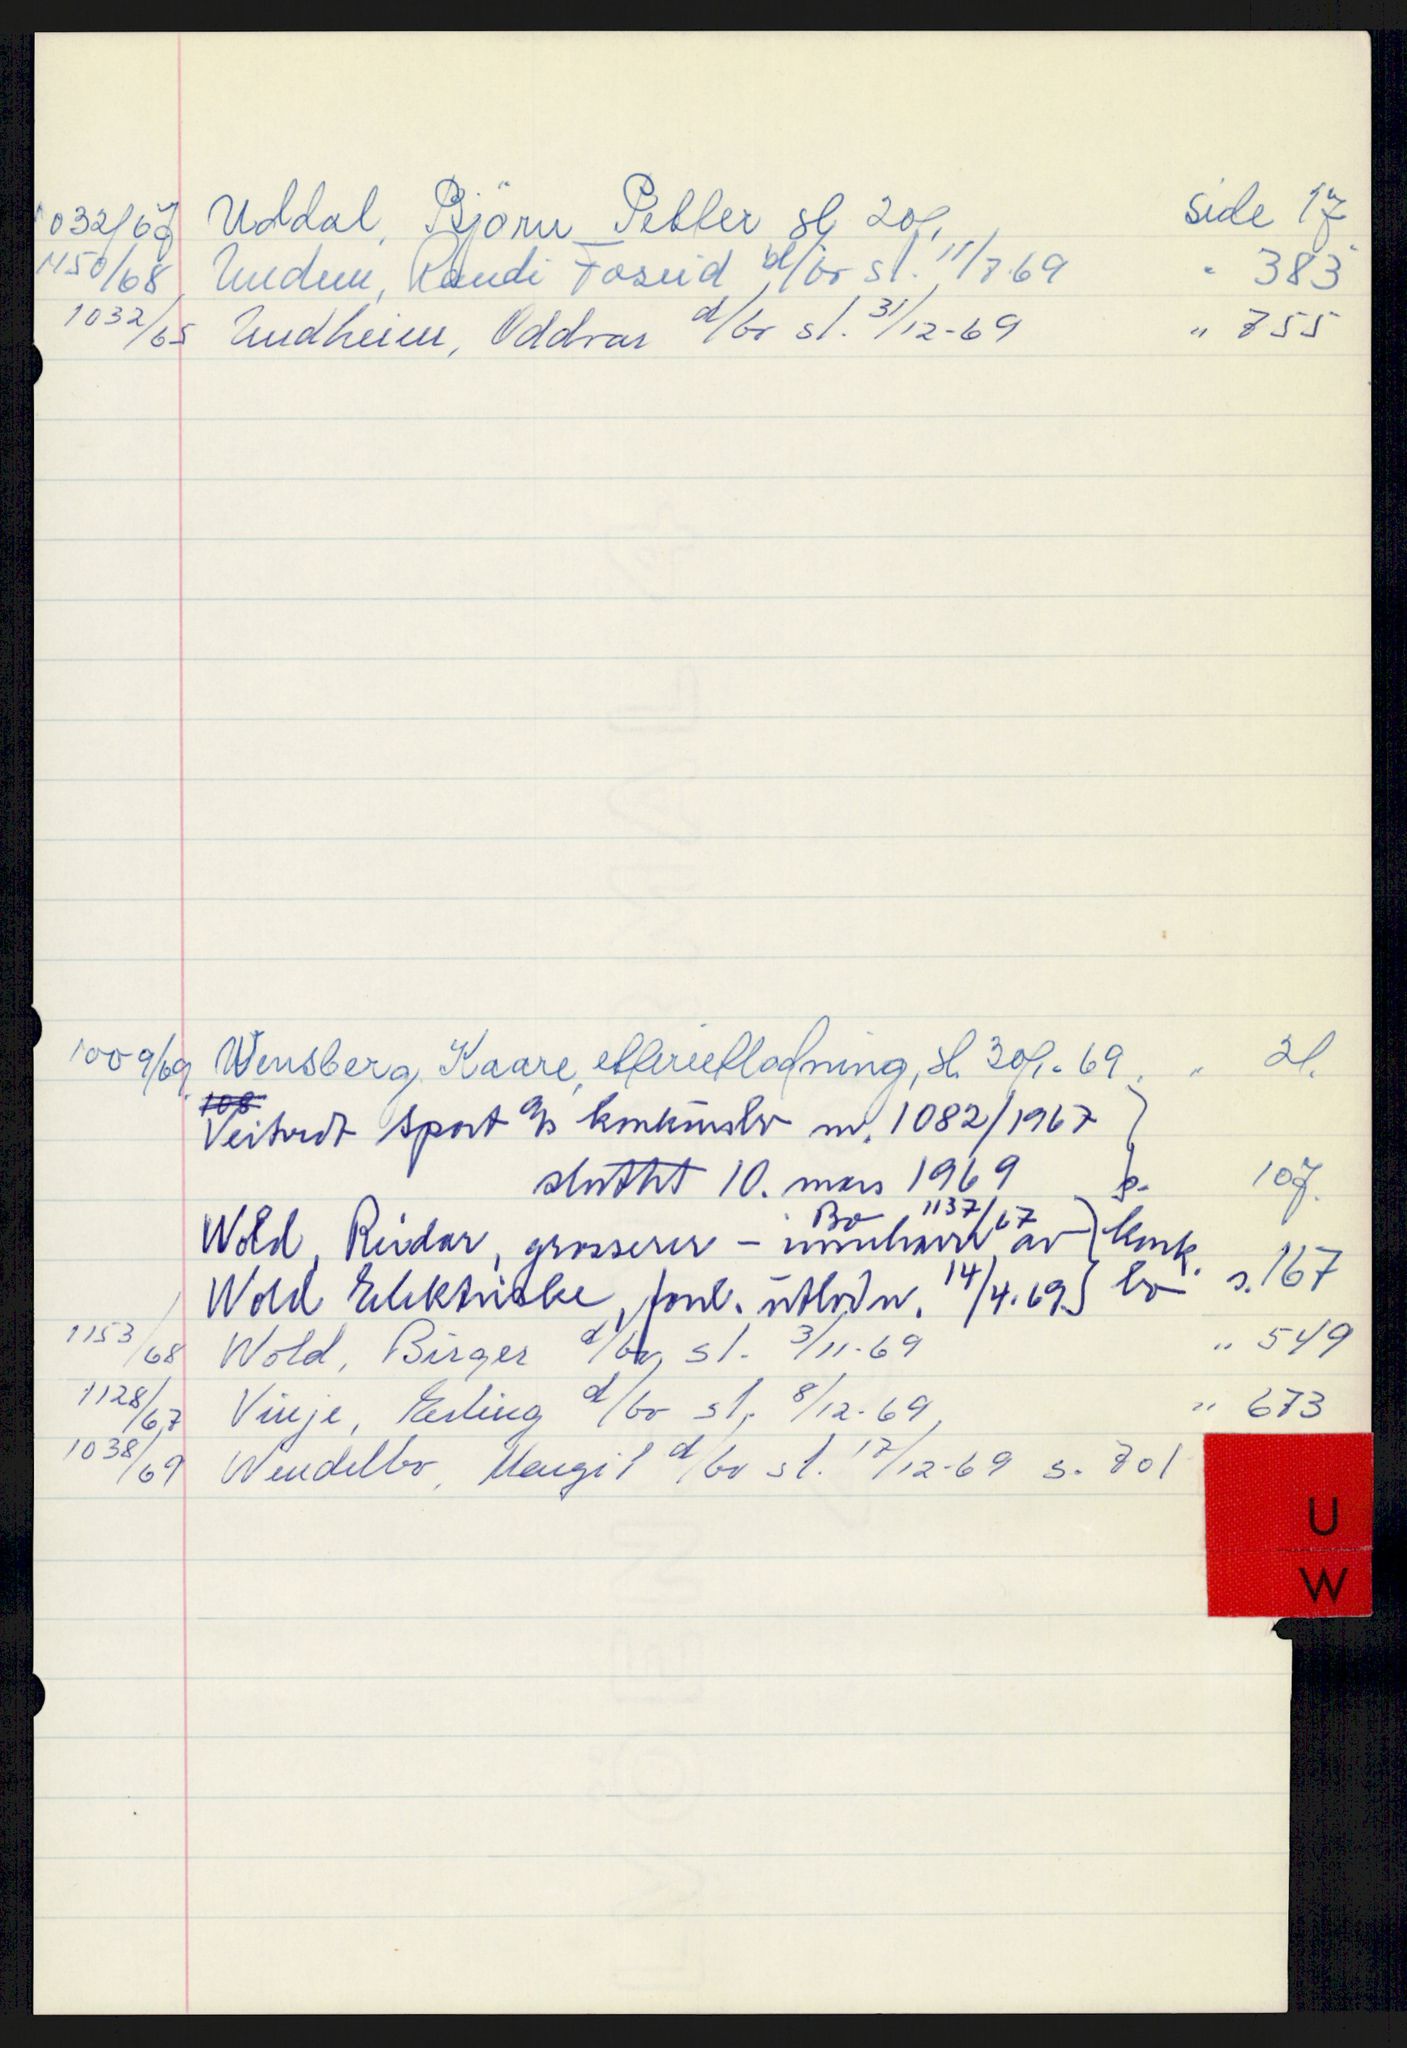 1032/67 Uddal, Björn Petter sl. 20/1 side 17
1150/68 Undem, Randi Tosrid d/bo sl. 11/7 69 " 383
1032/65 Undheim, Oddvar d/bo sl. 31/12-69 " 755
1009/69 Wensberg, Kaare, etterutlodning, sl. 30/1-69. " 21.
108
Veitvedt Sport A/S konkursbo nr. 1082/1967 }
sluttet 10. mars 1969 s. 107.
Bo 1137/67
Wold, Reidar, grosserer - innehaver av } konk.
Wold Elektriske, forel. utlodn. 14/4.69 } bo s. 167
1153/68 Wold, Birger d/bo, sl. 3/11-69 " 549
1128/67 Vinje, Erling d/bo sl. 8/12-69, " 673
1038/69 Wendelbo, Margit d/bo sl. 17/12-69 s. 701
U
W